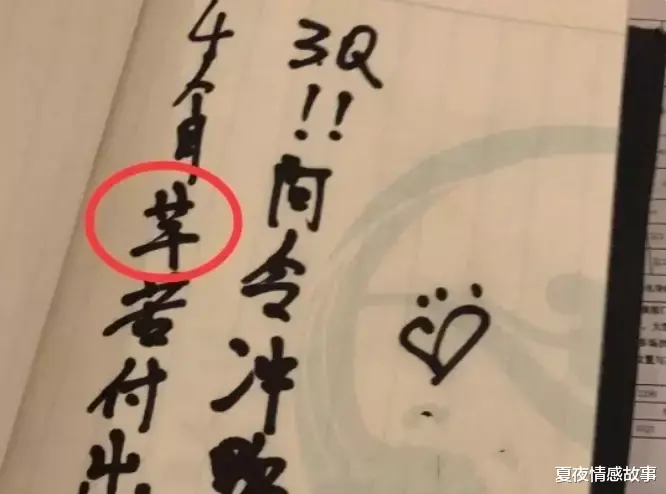 3Q!!问令冲
4个月芉苦付出
夏夜情感故事